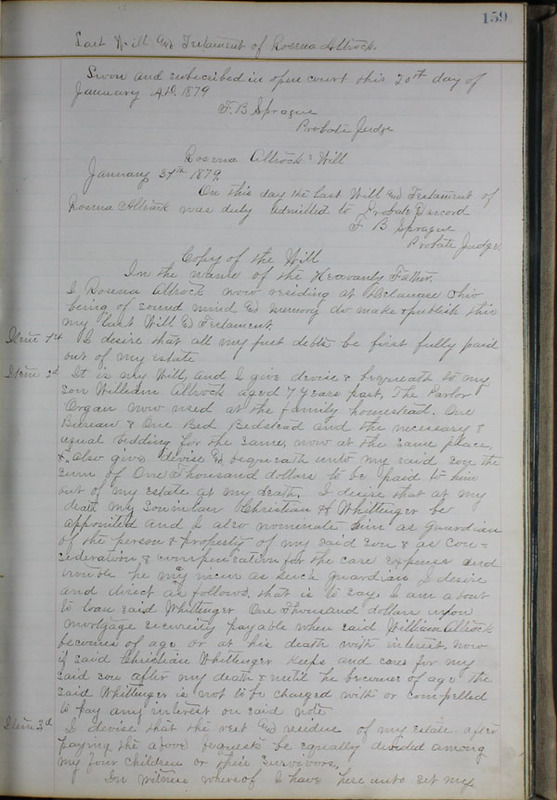 159
Last Will and Testament of Rosena Allrock
Sworn and subscribed in open court this 20th day of
January A.D. 1879
F. B Sprague
Probate Judge
Rosena Allrock's Will
January 1879
On this day the Last Will and Testament of
Rosena Allrock was duly admitted to Probate Record
F B Sprague
Probate Judge
Copy of the Will
In the name of the Heavenly Father,
I Rosena Allrock now residing at Ohio
being of sound mind and memory do make & publish this
my Last Will & Testament
Item 1st I desire that all my just debts be first fully paid
out of my estate
Item 2d It is my Will, and I give devise & bequeath to my
son William Allrock aged 7 years past, The Parlor
Organ now used at the family homestead. One
Bureau & One Bed Bedstead and the necessary &
usual bedding for the same, now at the same place,
& also give devise & bequeath unto my said son the
sum of One Thousand dollars to be paid to him
out of my estate at my death. I desire that at my
death my Soninlaw Christian H Whittinger be
appointed and I also nominate him as Guardian
of the person & property of my said son & as Con=
sideration & compensation for the care expense and
trouble he may incur as such guardian I desire
and direct as follows, that is to say I am about
to loan said Whittinger One thousand dollars upon
mortgage security payable when said William Allrock
becomes of age or at his death with interest. Now
if said Christian Whittinger keeps and cares for my
said son after my death & until he becomes of age the
said Whittinger is not to be charged with or compelled
to pay any interest on said note
Item 3th I devise that the rest and residue of my estate after
paying the above bequests be equally divided among
my four children or their survivors.
In witness whereof I have here unto set my